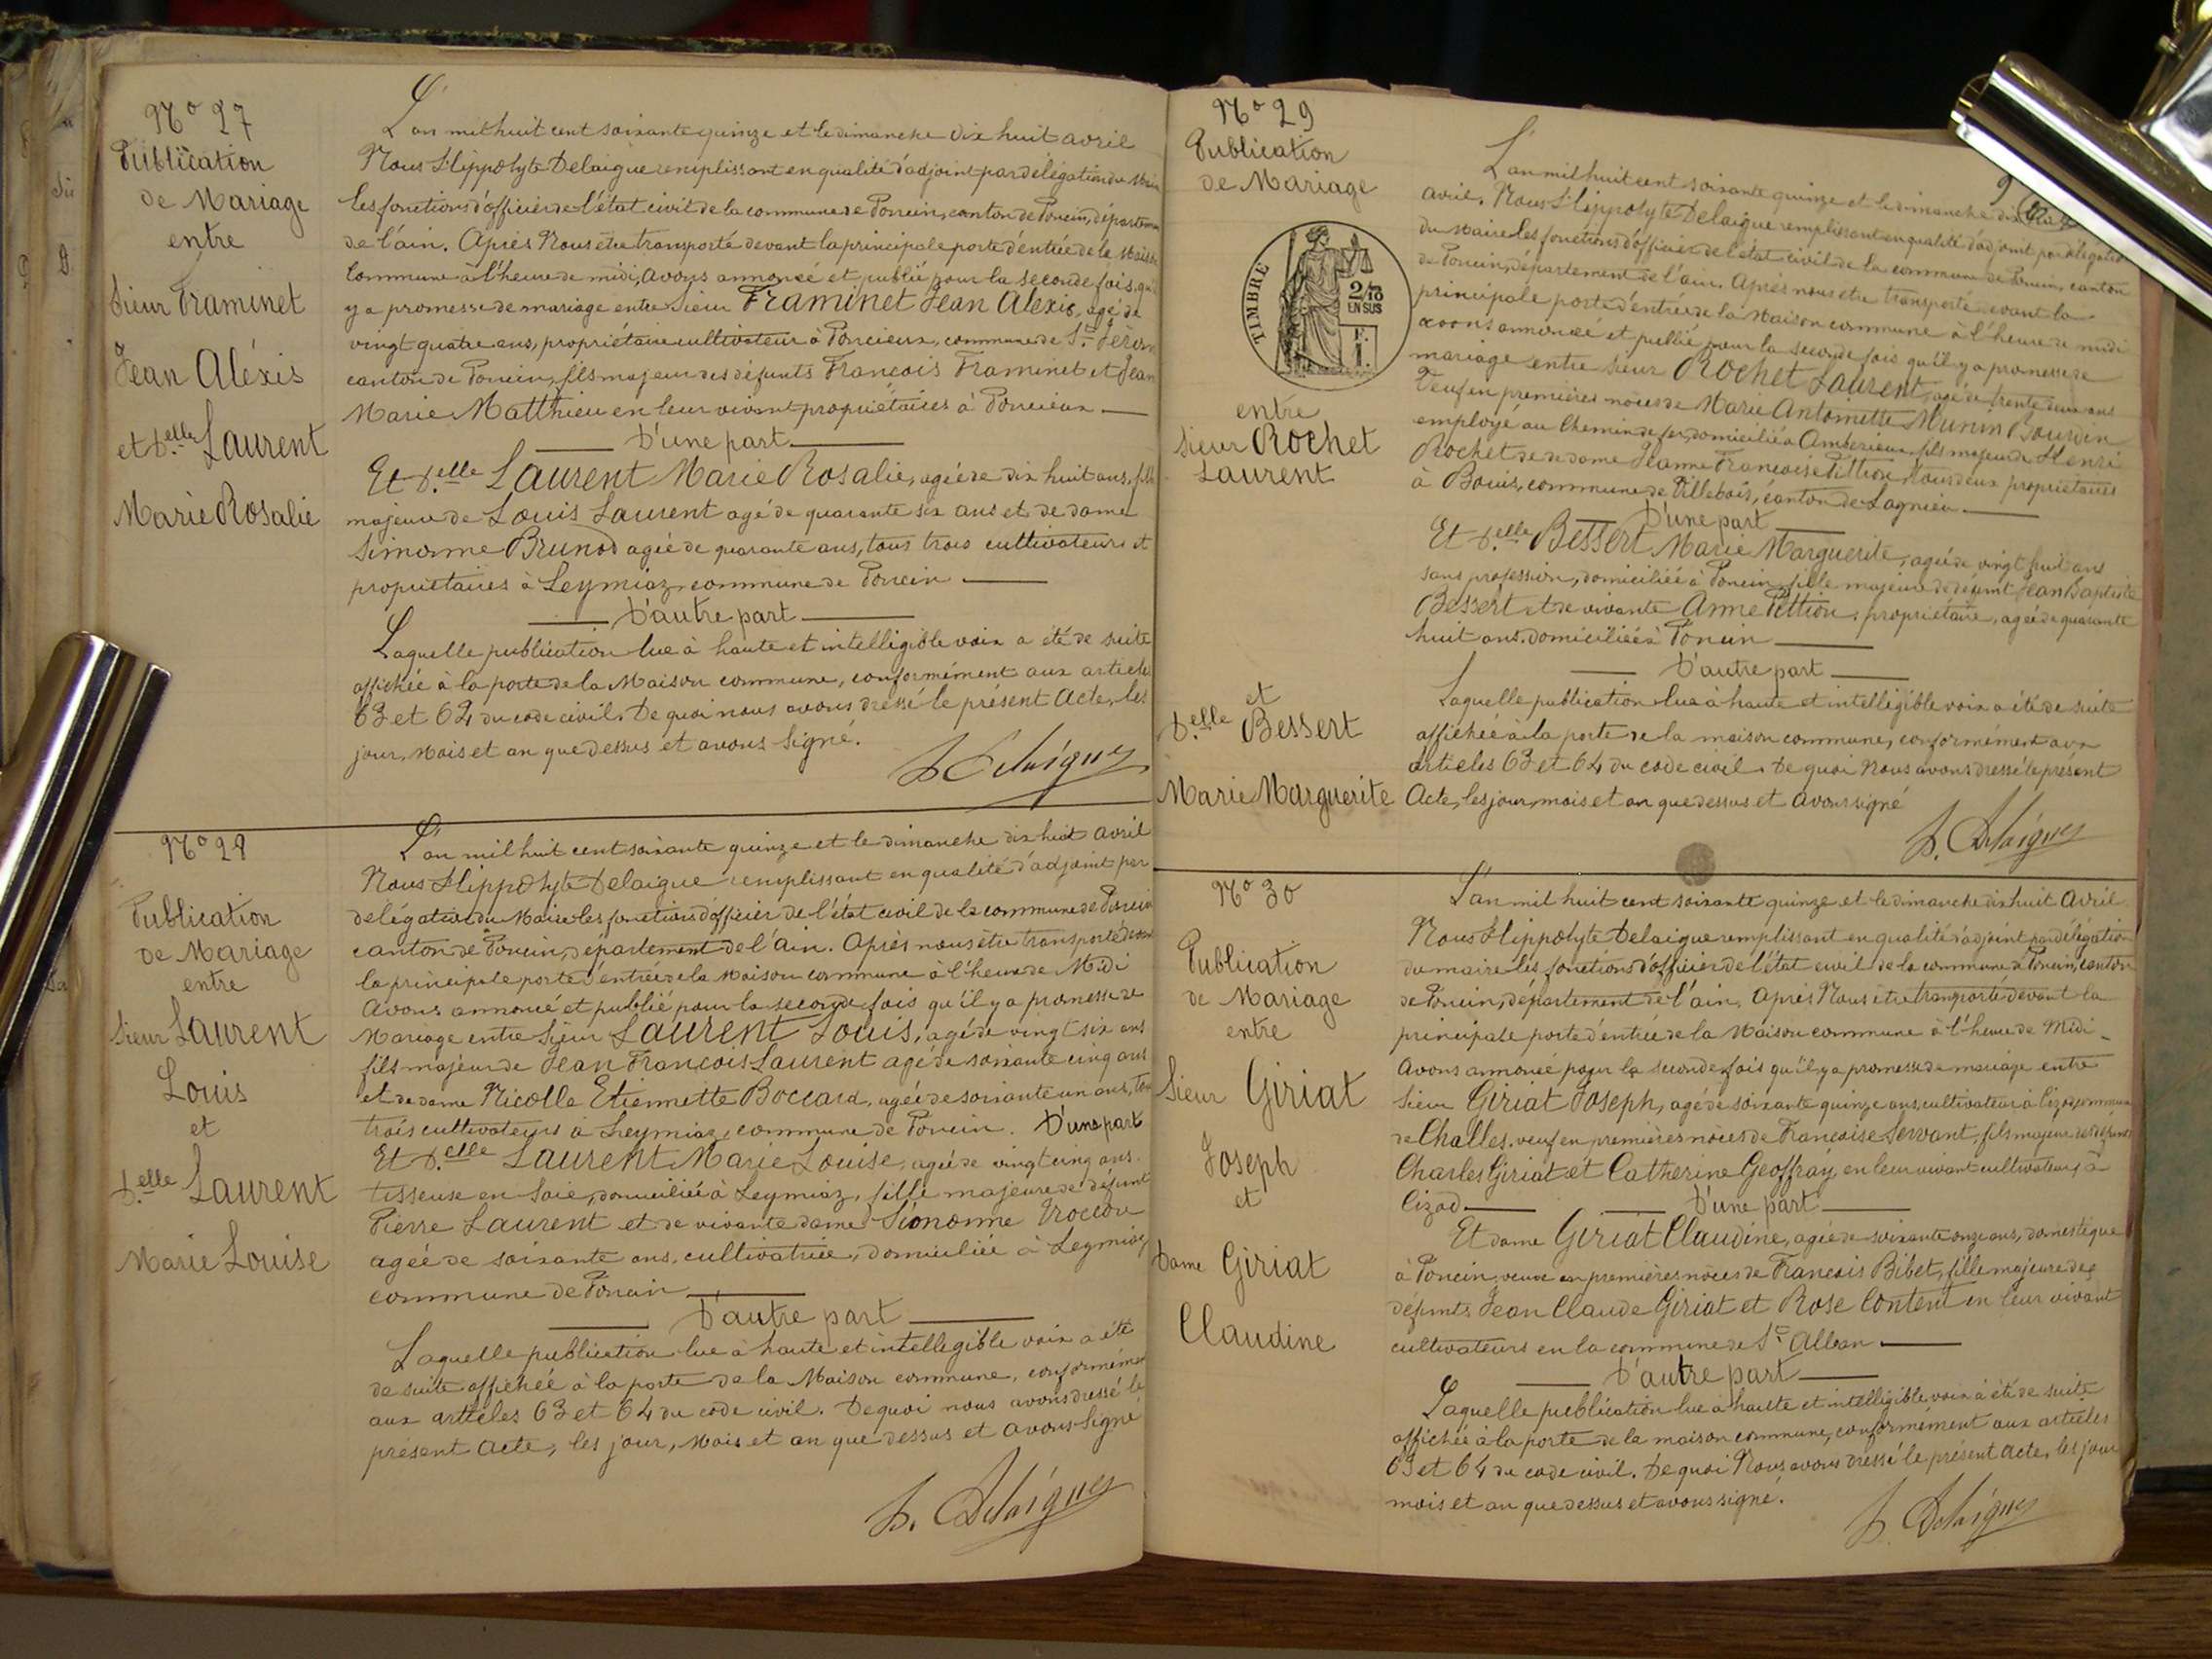 No 27
Publication
de Mariage
entre
Sieur Framinet
Jean Aléxis
et D.elle Laurent
Marie Rosalie
L'an mil huit cent soixante quinze et le dimanche dix huit avril
Nous Hippolyte Delaigue remplissant en qualité d'adjoint par délégation du Maire
les fonctions d'officier de l'état civil de la commune de Poncin, canton de Poncin, départemen
de l'ain. Après Nous être transporté devant la principale porte d'entrée de la Maison
Commune à l'heure de midi, avons annoncé et publié pour la seconde fois, qu'il
y a promesse de mariage entre Sieur Framinet Jean Alexis, agé de
vingt quatre ans, propriétaire cultivateur à Poncieux, commune de St. Jérôme
canton de Poncin, fils majeur des défunts Francois Framinet et Jean
Marie Matthieu en leur vivant propriétaires à Poncieux
D'une part
Et D.elle Laurent Marie Rosalie, agée de dix huit ans, fille
majeure de Louis Laurent agé de quarante six ans et de dame
Simonne Brunod agée de quarante ans, tous trois cultivateurs et
propriétaires à Leymiaz commune de Poncin
D'autre part
Laquelle publication lue à haute et intelligible voix a été de suite
affichée à la porte de la Maison commune, conformément aux articles
63 et 64 du code civil. De quoi nous avons dressé le présent Acte, les
jour, Mois et an que dessus et avons signé.
H. Delaigue
No 28
Publication
de Mariage
entre
Sieur Laurent
Louis
et
D.elle Laurent
Marie Louise
L'an mil huit cent soixante quinze et le dimanche dix huit avril
Nous Hippolyte Delaigue remplissant en qualité d'adjoint par
délégation du Maire les fonctions d'officier de l'état civil de la commune de Poncin
canton de Poncin, département de l'ain. Après nous être transporté devant
la principale porte d'entrée de la Maison commune à l'heure de Midi
Avons annoncé et publié pour la seconde fois qu'il y a promesse de
Mariage entre Sieur Laurent Louis, agé de vingt six ans
fils majeur de Jean François Laurent agé de soixante cinq ans
et de dame Nicolle Etiennette Boccard, agée de soixante un ans, tous
trois cultivateurs à Leymiaz, commune de Poncin. D'une part
Et D.elle Laurent Marie Louise, agée de vingt cinq ans.
tisseuse en soie, domiciliée à Leymiaz, fille majeure de défunt
Pierre Laurent et de vivante dame Simonne Troccon
agée de soixante ans, cultivatrice, domiciliée à Leymiaz
commune de Poncin
D'autre part
Laquelle publication lue à haute et intelligible voix a été
de suite affichée à la porte de la Maison commune, conformément
aux articles 63 et 64 du code civil. De quoi nous avons dressé le
présent Acte, les jour, Mois et an que dessus et avons signé
H. Delaigue
No 29
Publication
de Mariage
TIMBRE
2/10
EN SUS
F.
1.
entre
Sieur Rochet
Laurent
et
D.elle Bessert
Marie Marguerite
9
L'an mil huit cent soixante quinze et le dimanche dix huit
avril. Nous Hippolyte Delaigue remplissant en qualité d'adjoint par délégation
du Maire les fonctions d'officier de l'état civil de la commune de Poncin, canton
de Poncin, département de l'ain. Après nous être transporté devant la
principale porte d'entrée de la Maison commune à l'heure de midi
avons annoncé et publié pour la seconde fois qu'il y a promesse de
mariage entre Sieur Rochet Laurent, agé de trente deux ans
Veuf en premières noces de Marie Antoinette Munin Bourdin
employé au Chemin de fer, domicilié à Amberieux, fils majeur de Henri
Rochet et de dame Jeanne Françoise Pittion tous deux propriétaires
à Bouis, commune de Villebois, canton de Lagnieu
D'une part
Et D.elle Bessert Marie Marguerite, agée de vingt huit ans
sans profession, domiciliée à Poncin, fille majeure de défunt Jean Baptiste
Bessert et de vivante Anne Pittion, propriétaire, agée de quarante
huit ans. domiciliée à Poncin
D'autre part
Laquelle publication lue à haute et intelligible voix a été de suite
affichée à la porte de la maison commune, conformément aux
articles 63 et 64 du code civil. De quoi Nous avons dressé le présent
Acte, les jour, mois et an que dessus et avons signé
H. Delaigue
No 30
Publication
de Mariage
entre
Sieur Giriat
Joseph
et
Dame Giriat
Claudine
L'an mil huit cent soixante quinze et le dimanche dix huit Avril
Nous Hippolyte Delaigue remplissant en qualité d'adjoint par délégation
du maire les fonctions d'officier de l'état civil de la commune de Poncin, canton
de Poncin, département de l'ain. Après Nous être transporté devant la
principale porte d'entrée de la Maison commune à l'heure de Midi
Avons annoncé pour la seconde fois qu'il y a promesse de mariage entre
Sieur Giriat Joseph, agé de soixante quinze ans, cultivateur à Cizod, commune
de Challes, veuf en premières noces de Françoise Servant, fils majeur des défunts
Charles Giriat et Catherine Geoffray, en leur vivant cultivateurs à
Cizod D'une part
Et dame Giriat Claudine, agée de soixante onze ans, domestique
à Poncin, veuve en premières noces de Francois Bibet, fille majeure des
défunts Jean Claude Giriat et Rose Content en leur vivant
cultivateurs en la commune de St. Alban
D'autre part
Laquelle publication lue à haute et intelligible voix à été de suite
affichée à la porte de la maison commune, conformément aux articles
63 et 64 du code civil. De quoi Nous avons dressé le présent Acte, les jour
mois et an que dessus et avons signé.
H. Delaigue